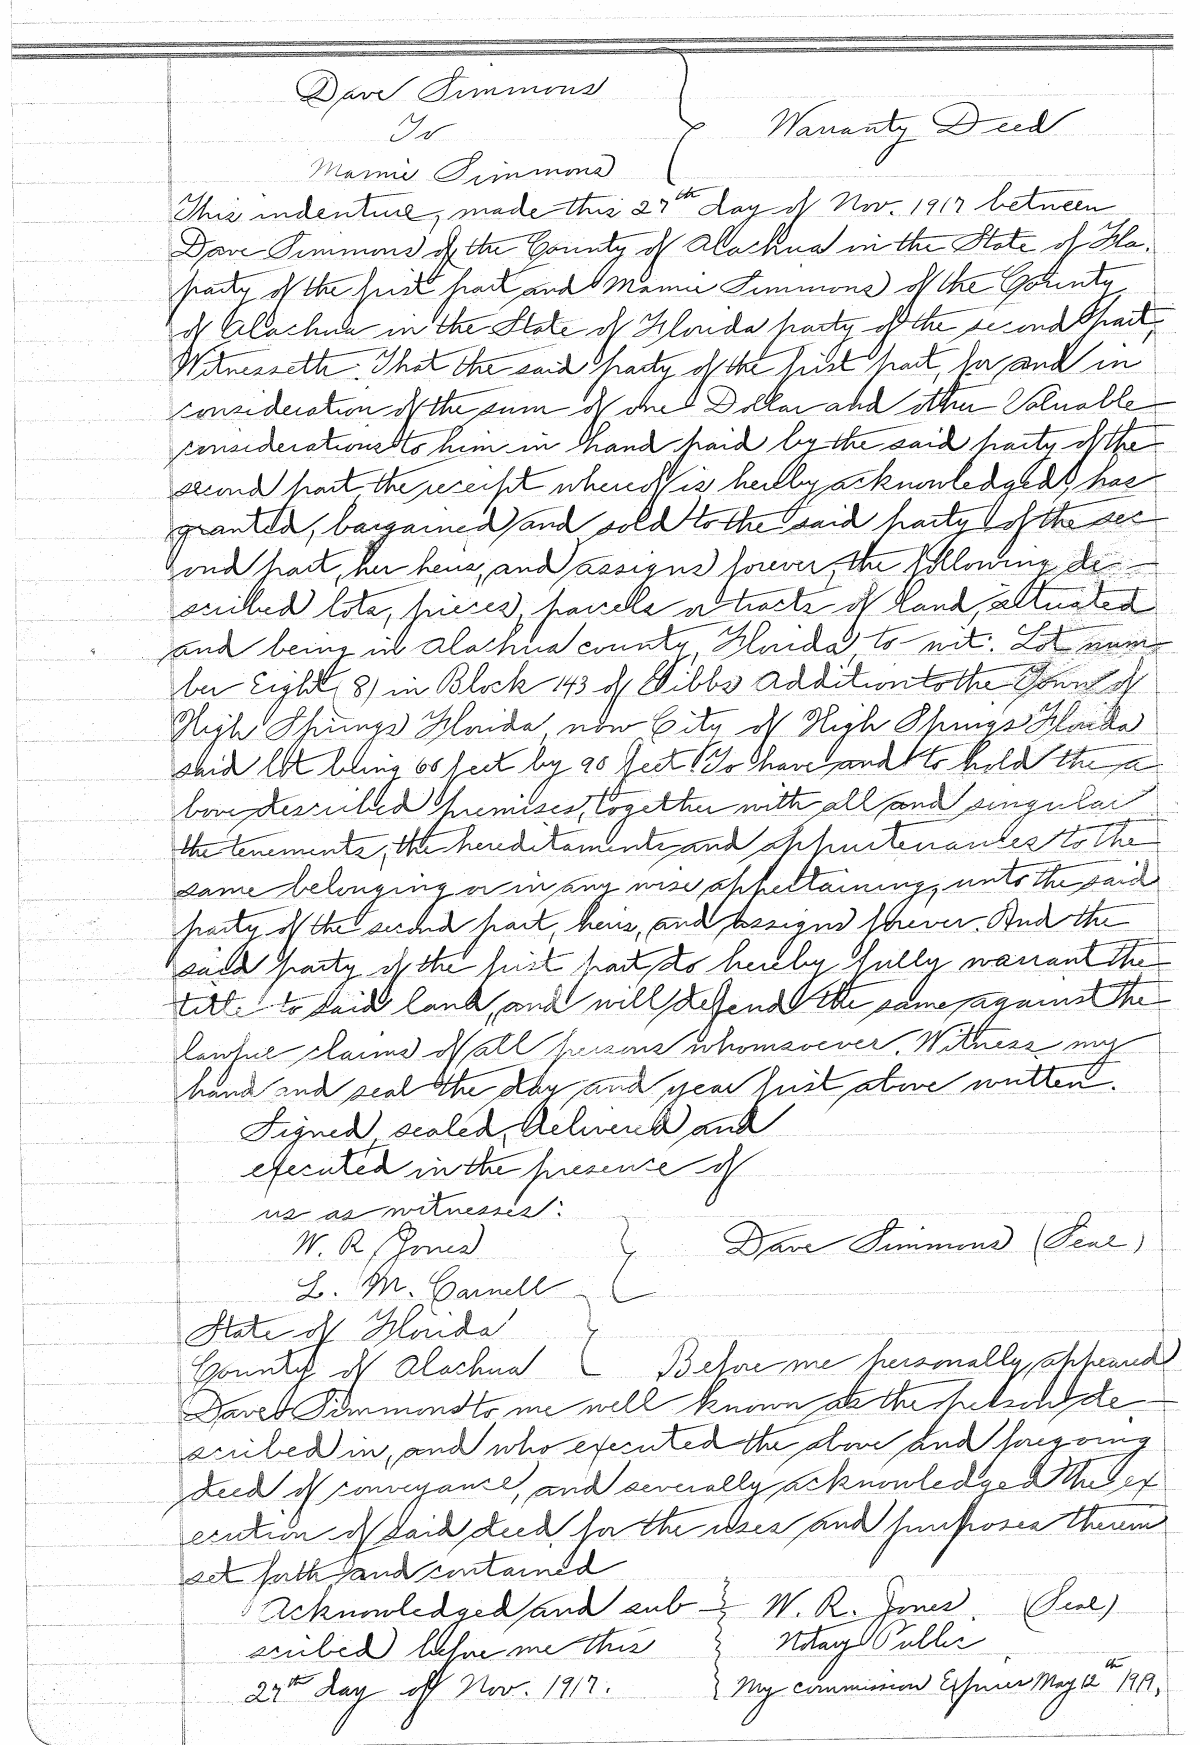 Dave Simmons
To
Warranty Deed
Mamie Simmons
This indenture, made this 27th day of Nov. 1917 between
Dave Simmons of the County of Alachua in the State of Fla.
party of the first part and Mamie Simmons of the County
of Alachua in the State of Florida party of the second part,
Witnesseth: That the said party of the first part, for and in
consideration of the sum of one Dollar and other Valuable
considerations to him in hand paid by the said party of the
second part the receipt whereof is hereby acknowledged, has
granted, bargained and sold to the said party of the sec
ond part, her heirs, and assigns forever, the following de
scribed lots, pieces, parcels or tracts of land, situated
and being in Alachua county, Florida, to wit: Lot num
ber Eight (8) in Block 143 of Gibbs Addition to the Town of
High Springs Florida, now City of High Springs Florida
said lot being 66 feet by 90 feet. To have and to hold the a
bove described premises, together with all and singular
the tenements, the hereditaments and appurtenances to the
same belonging or in any wise appertaining, unto the said
party of the second part, heirs, and assigns forever. And the
said party of the first part, do hereby fully warrant the
title to said land, and will defend the same against the
lawful claims of all persons whomsoever. Witness my
hand and seal the day and year first above written.
Signed, sealed, delivered and
executed in the presence of
us as witnesses:
W. R. Jones
Dave Simmons (Seal)
L. M. Carnell
State of Florida
County of Alachua Before me personally, appeared
Dave Simmons to me well known as the person de
scribed in, and who executed the above and foregoing
deed of conveyance, and severally acknowledged the ex
ecution of said deed for the uses and purposes therein
set forth and contained
Acknowledged and sub W. R. Jones. (Seal)
scribed before me this Notary Public
27th day of Nov. 1917. My commission Expires May 12th 1919.